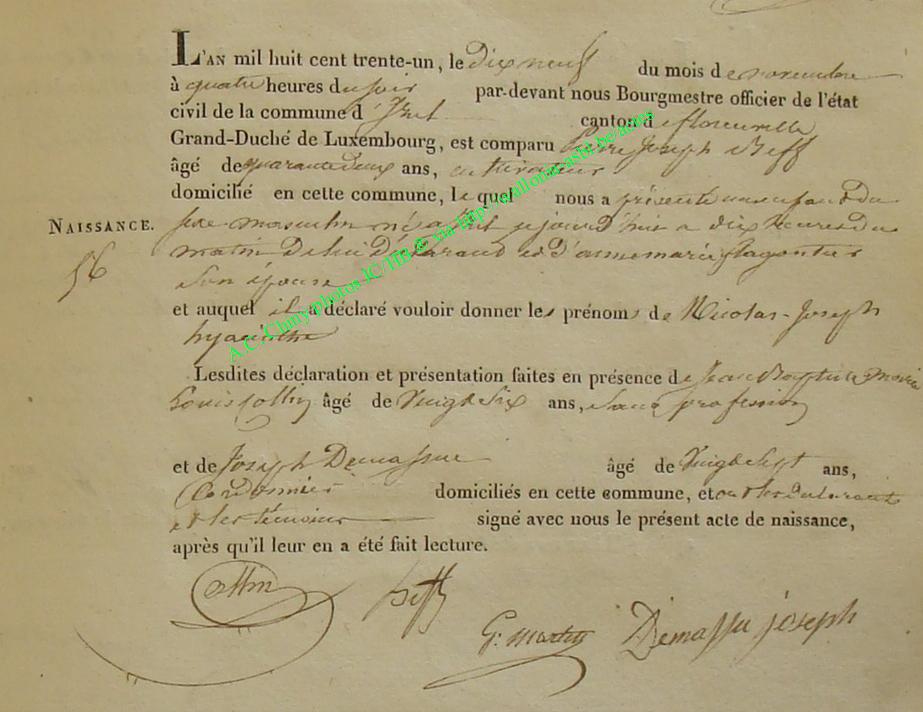 L'AN mil huit cent trente-un, le dix neuf du mois de novembre
à quatre heures du soir par-devant nous Bourgmestre officier de l'état
civil de la commune d'Izel canton de florenville
Grand-Duché de Luxembourg, est comparu Pierre Joseph Beff
âgé de quarante deux ans, cultivateur
domicilié en cette commune, lequel nous a présenté un enfant du
NAISSANCE. sexe masculin né à Izel ce jourd'hui a dix heures du
56 matin De lui Déclarant et D'anne marie
son epouse
et auquel il a déclaré vouloir donner les prénoms de Nicolas-Joseph
hyacinthe
Lesdites déclaration et présentation faites en présence de Jean Baptiste Marie
Louis Collin âgé de Vingt Six ans, Sans profession
et de Joseph Demassue âgé de Vingt Sept ans,
Cordonnier domiciliés en cette commune, et ont les declarant
et les témoins signé avec nous le présent acte de naissance,
après qu'il leur en a été fait lecture.
Collin beff
G. Martin Demassu joseph
A.C. Chiny photos IC/HB & via http://etallonas.asbl.be/actes